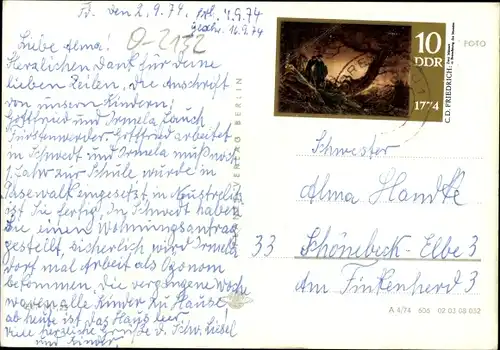 Fü. den 2.9.74, erh. 4.9.74
Beantw. 16.9.74
O-2132
Liebe Alma!
Herzlichen Dank für Deine
lieben Zeilen. Die Anschrift
von unsern Kindern:
Gottfried und Irmela Lauch
Fürstenwerder Gottfried arbeitet
in Schwedt und Irmela muß noch
1 Jahr zur Schule würde in
Pasewalk eingesetzt in Neustrelitz
ist sie fertig. In Schwedt haben
sie einen Wohnungsantrag
gestellt, sicherlich wird Irmela
dort mal Arbeit als Ökonom
bekommen. Die vergangene Woche
waren alle Kinder zu Hause
ab heute ist das Haus leer
viele herzliche Grüße d. Schw. Liesel
und Kinder.
10
DDR
C.D. FRIEDRICH:
1774
FOTO
BERLIN
Schwester
Alma Handke
33 Schönebeck-Elbe 3
Am Finkenherd 3
A 4/74 606 02 03 08 032